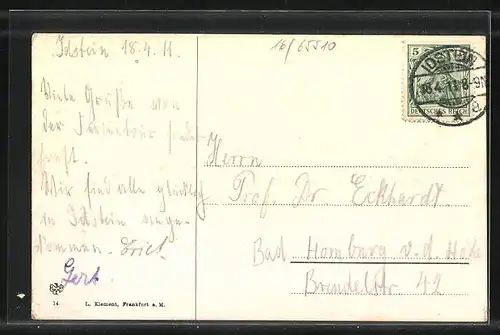 Idstein 18.4.11.
16/65510
Viele Grüße von
der
Wir sind alle glücklich
in Idstein ange-
kommen. Erich.
Gert.
14
L. Klement, Frankfurt a. M.
5
DEUTSCHES REICH
IDSTEIN
18.4.11.8-9N
Herrn
Prof. Dr Eckhardt
Bad Homburg v. d. Höhe
Brendelstr 42